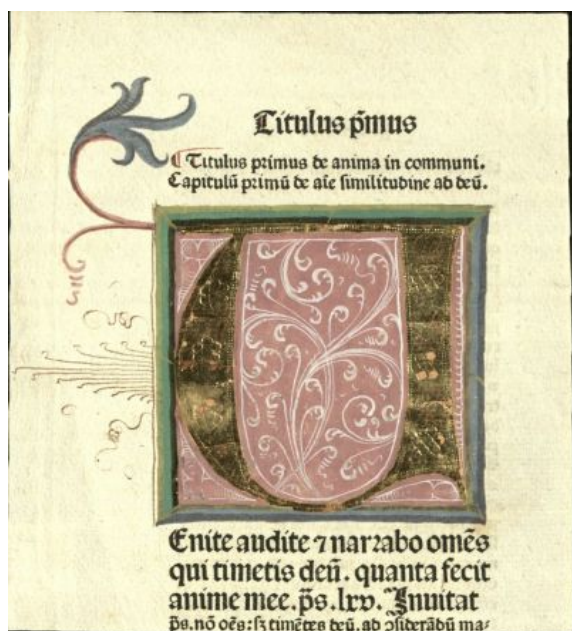 Titulus p̄mus
¶ Titulus primus de anima in communi.
Capitulū primū de aīe similitudine ad deū.
U
Enite audite ⁊ narrabo omēs
qui timetis deū. quanta fecit
anime mee. p̄s. lxv. Inuitat
p̄s. nō oēs: sꝫ timētes deū. ad ↄsiderādū ma⸗